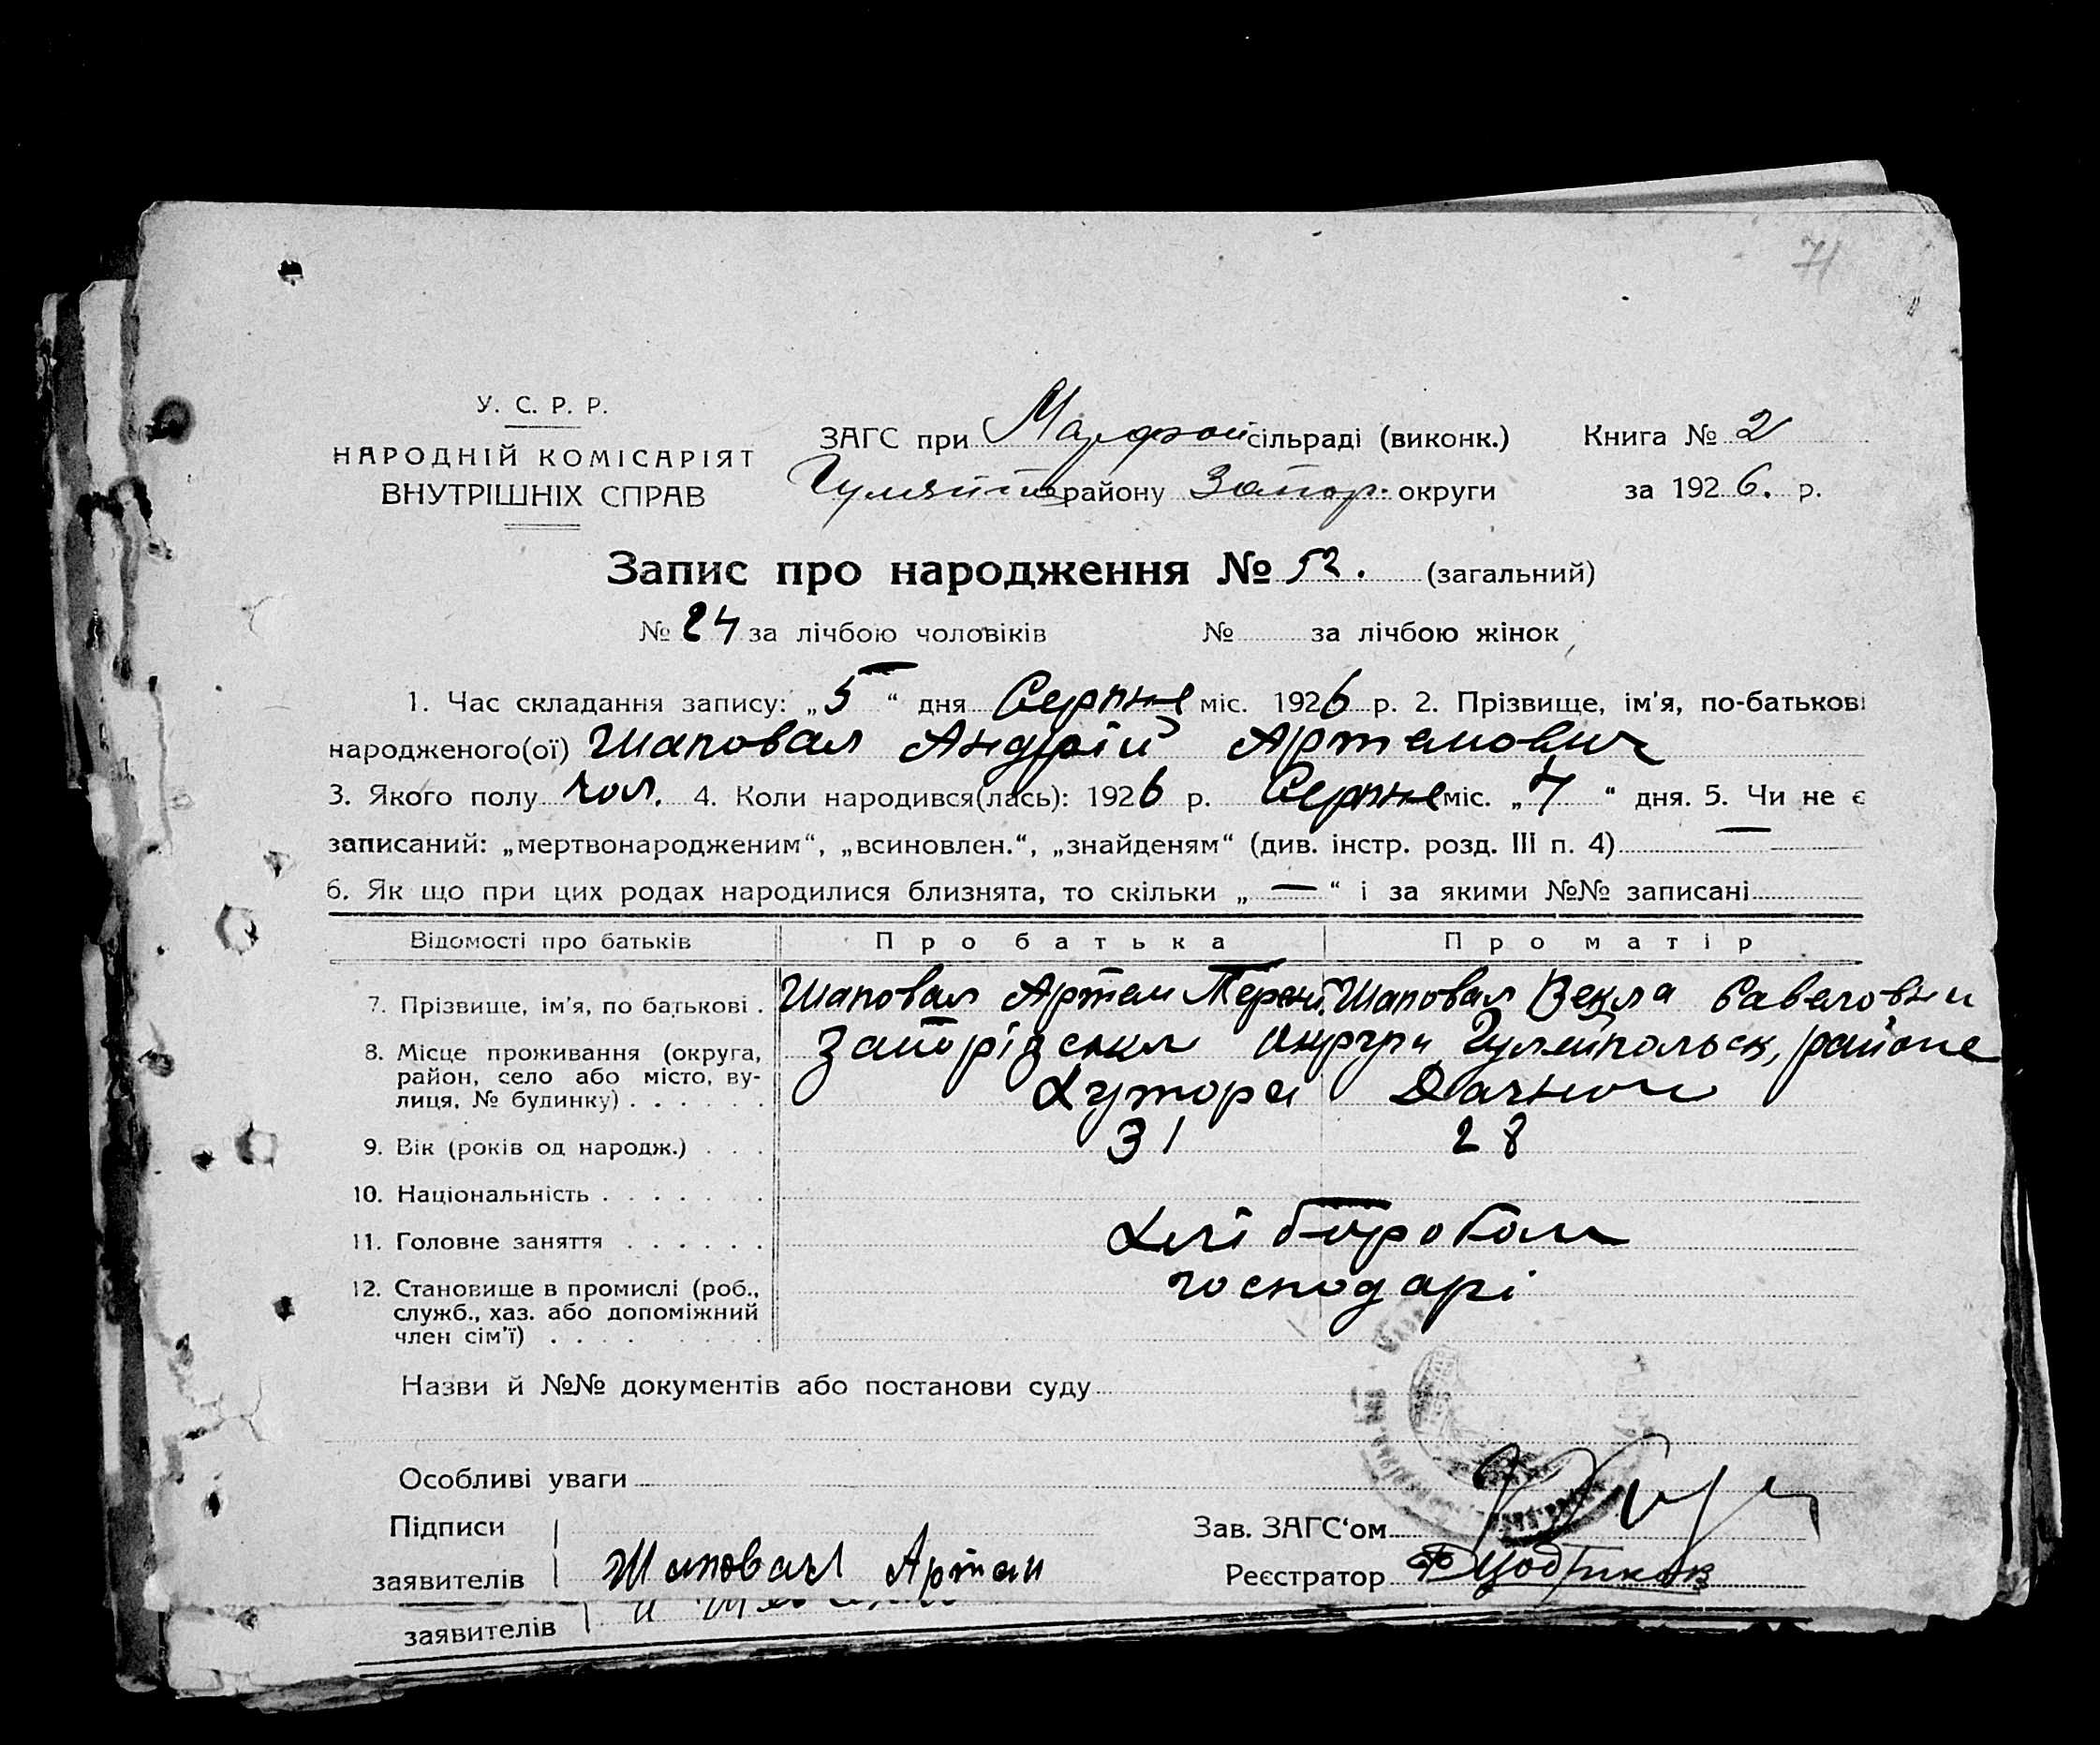 71
У. С. Р. Р.
НАРОДНІЙ КОМІСАРІЯТ
ВНУТРІШНІХ СПРАВ
ЗАГС при Марфоп сільраді (виконк.) Книга № 2
району Запор. округи за 1926. р.
Запис про народження № 52. (загальний)
№ 24 за лічбою чоловіків № за лічбою жінок
1. Час складання запису: „5“ дня Серпне міс. 1926 р. 2. Прізвище, ім'я, по-батькові
народженого(ої) Шаповал Андрій Артемович
3. Якого полу чол. 4. Коли народився(лась): 1926 р. Серпне міс. „4“ дня. 5. Чи не є
записаний: „мертвонародженим“, „всиновлен.“, „знайденям“ (див. інстр. розд. III п. 4) —
6. Як що при цих родах народилися близнята, то скільки „—“ і за якими №№ записані
Відомості про батьків Про батька Про матір
7. Прізвище, ім'я, по батькові . Шаповал Артем Терент. Шаповал Векла Савеловни
8. Місце проживання (округа, район, село або місто, вулиця, № будинку) Запорізської округи Гуляйпольськ, районе
Хутора Дачної
9. Вік (років од народж.) . . . 31 28
10. Національність . . . . . . .
11. Головне заняття . . . . . . Хліборобом
12. Становище в промислі (роб., господарі
служб., хаз. або допоміжний
член сім'ї) . . . . . . . . .
Назви й №№ документів або постанови суду
Особливі уваги
Підписи Зав. ЗАГС‘ом
заявителів Шаповал Артем Реєстратор
заявителів